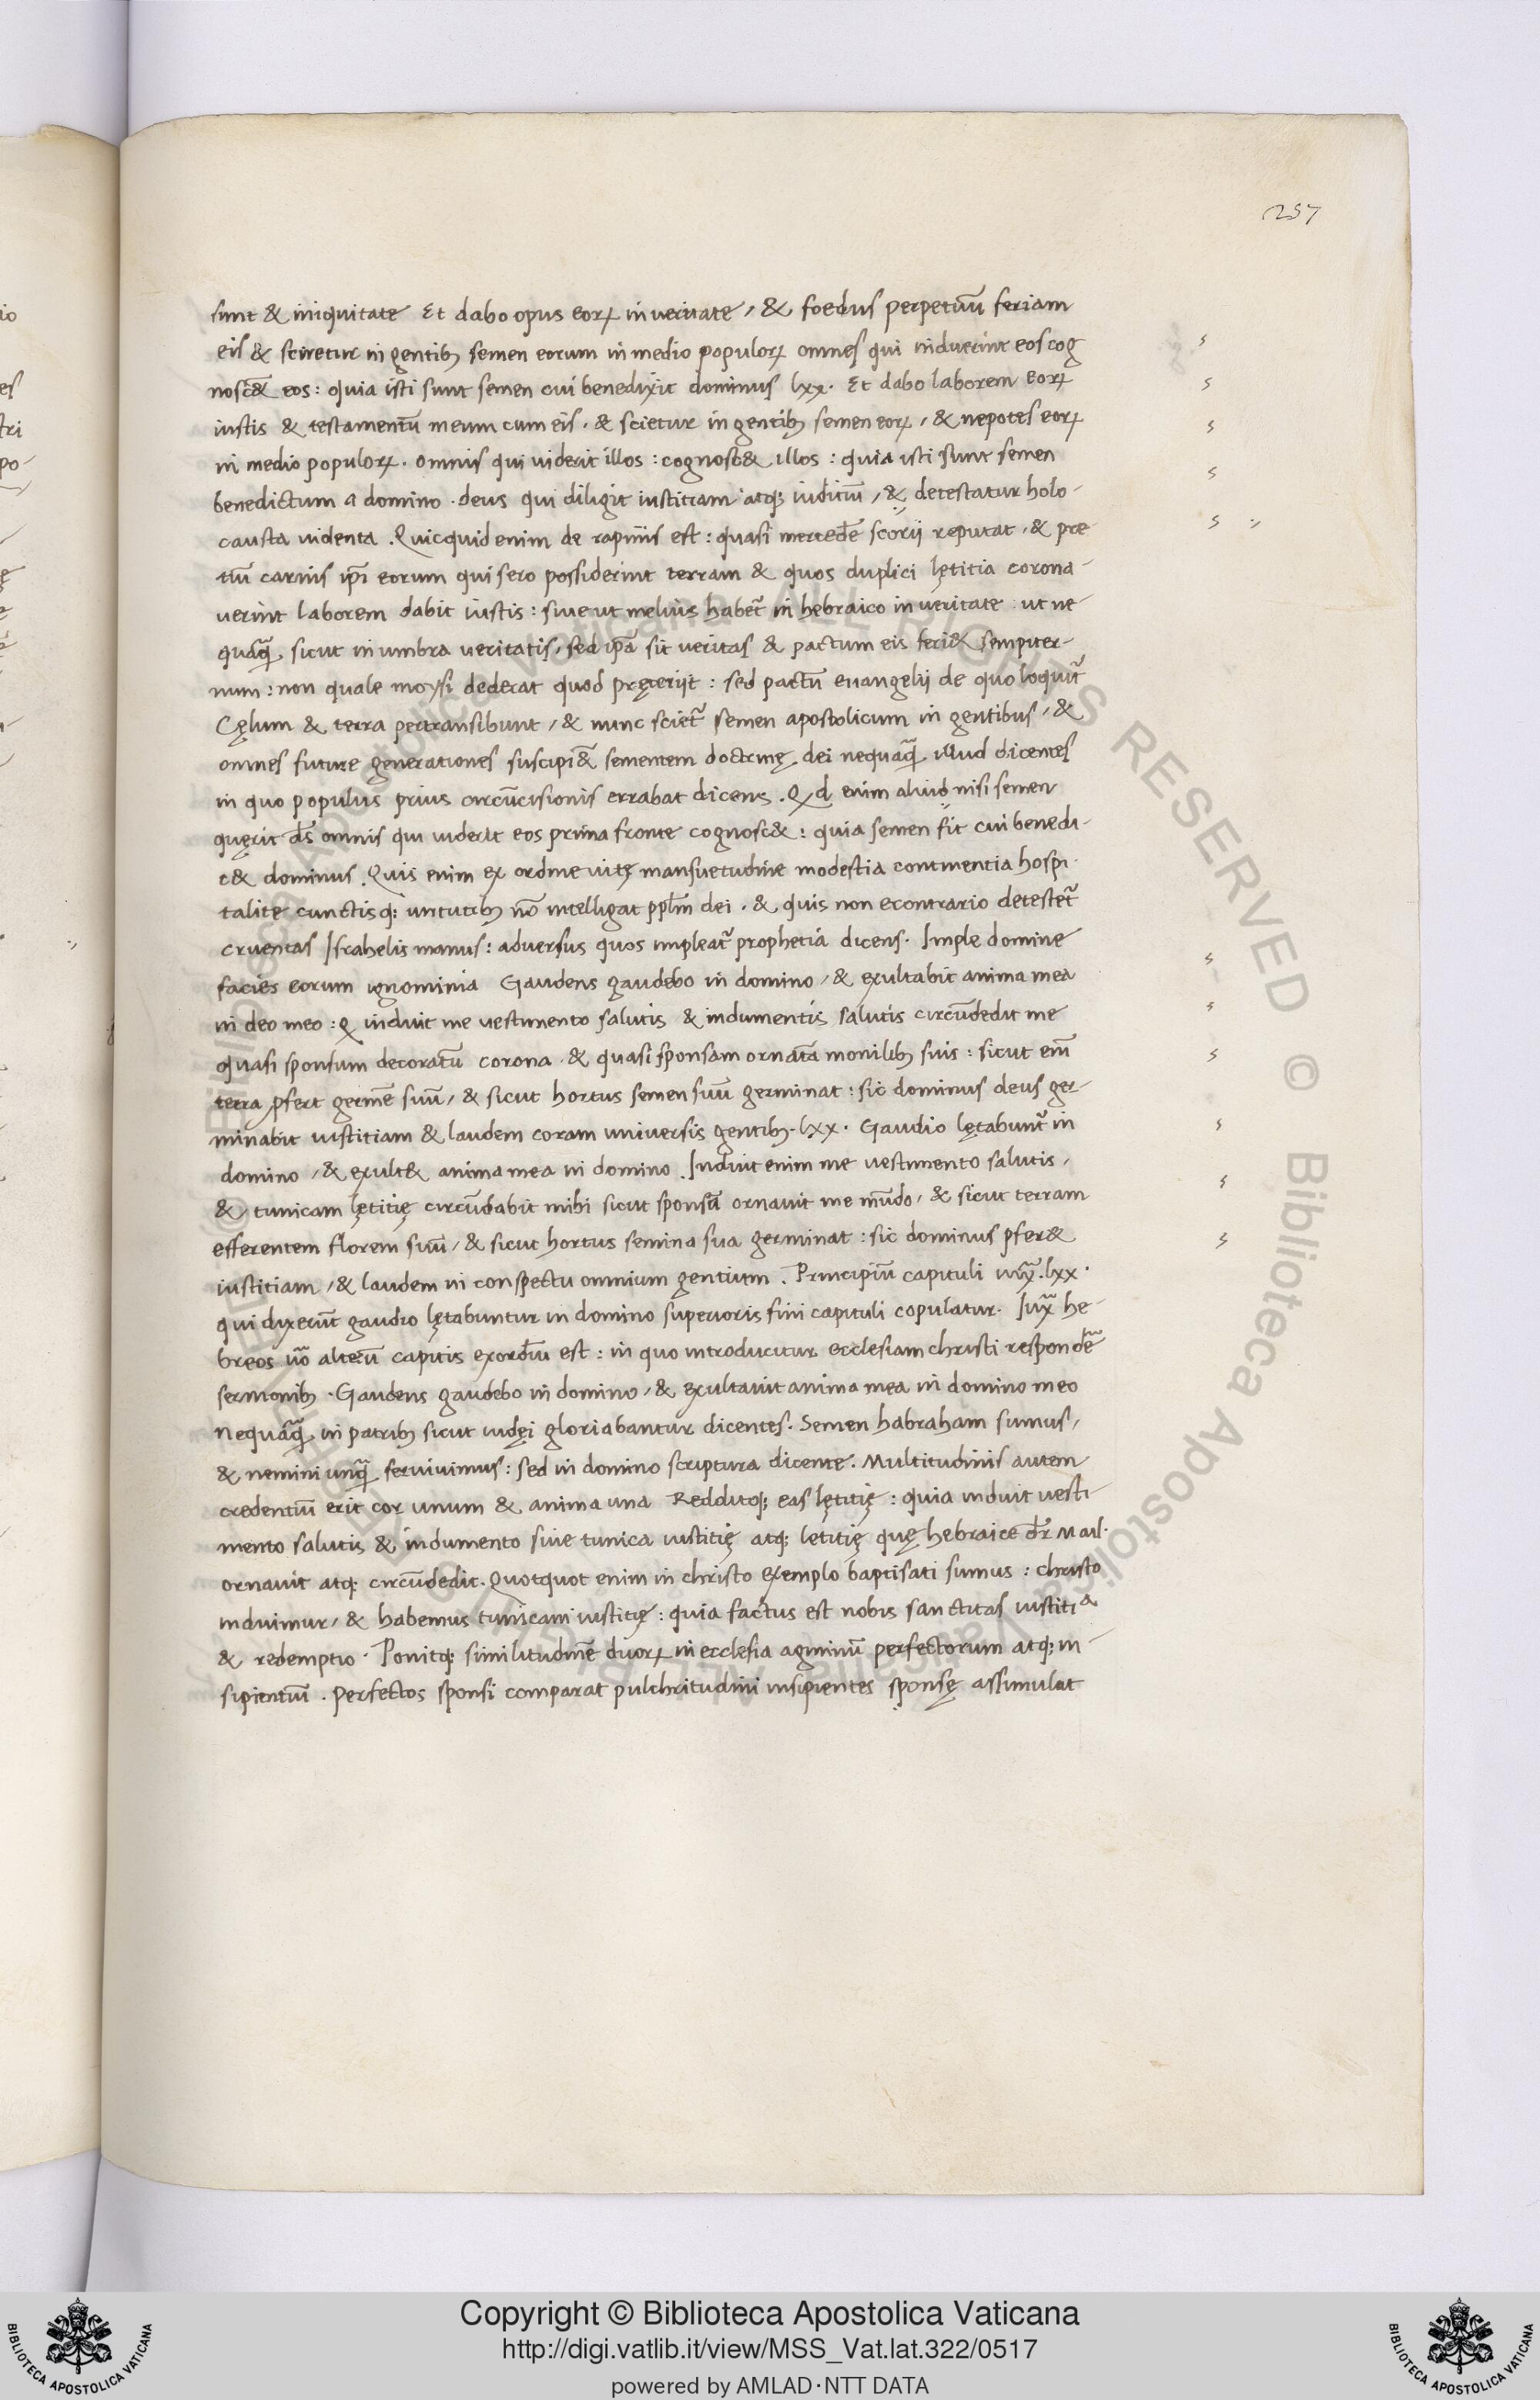 257
sunt & iniquitate Et dabo opus eorꝝ in veritate, & foedus perpetuū feriam
eis & scietur in gentibꝫ semen eorum in medio populorꝝ omnes qui induerint eos cog
nosc& eos: quia isti sunt semen cui benedixit dominus lxx. Et dabo laborem eorꝝ
iustis & testamentū meum cum eis. & scietur in gentibꝫ semen eorꝝ, & nepotes eorꝝ
in medio populorꝝ. omnis qui viderit illos: cognosc& illos: quia isti sunt semen
benedictum a domino. deus qui diligit iustitiam atqꝫ iuditiū, & detestatur holo-
causta videnta. Quicquid enim de rapinis est: quasi mercedē scorij reputat, & pre-
tiū carnis ip̄i eorum qui sero possiderint terram & quos duplici lętitia corona-
verint laborem dabit iustis: siue ut melius habet᷑ in hebraico in veritate ut ne-
quāꝗ sicut in umbra veritatis, sed ip̄a sit veritas & pactum eis feri& sempiter-
num: non quale moysi dederat quod pręterijt: sed pactū euangelij de quo loquit᷑
Cęlum & terra pertransibunt, & nunc sciet᷑ semen apostolicum in gentibus, &
omnes future generationes suscipi& sementem doctrinę dei nequāꝗ illud dicentes
in quo populus prius circūcisionis errabat dicens. Qd enim aliud nisi semen
quęrit d̄s omnis qui viderit eos prima fronte cognosc&: quia semen sit cui benedi-
c& dominus. Quis enim ex ordine vitę mansuetudine modestia continentia hospi-
talite cunctisqꝫ virtutibꝫ nō intelligat pp̄lm dei. & quis non econtrario detestet᷑
cruentas Israhelis manus: adversus quos impleat᷑ prophetia dicens. Imple domine
facies eorum ignominia Gaudens gaudebo in domino, & exultabit anima mea
in deo meo: ꝙ induit me vestimento salutis & indumentis salutis circūdedit me
quasi sponsum decoratū corona. & quasi sponsam ornatā monilibꝫ suis: sicut em̄
terra ꝓfert germē suū, & sicut hortus semen suū germinat: sic dominus deus ger-
minabit iustitiam & laudem coram universis gentibꝫ. lxx. Gaudio lętabunt᷑ in
domino, & exult& anima mea in domino. Induit enim me vestimento salutis,
& tunicam lętitię circūdabit mihi sicut sponsā ornavit me mūdo, & sicut terram
efferentem florem suū, & sicut hortus semina sua germinat: sic dominus ꝓfer&
iustitiam, & laudem in conspectu omnium gentium. Principiū capituli iux̄. lxx.
qui dixerūt gaudio lętabuntur in domino superioris fini capituli copulatur. Iux̄ he-
breos v̄o alterū capitis exordiū est: in quo introducitur ecclesiam christi respondē
sermonibꝫ. Gaudens gaudebo in domino, & exultavit anima mea in domino meo
nequāꝗ in patribꝫ sicut iudęi gloriabantur dicentes. Semen habraham sumus,
& nemini unꝗ̄ servivimus: sed in domino scriptura dicente. Multitudinis autem
credentiū erit cor unum & anima una Redditqꝫ eas lętitię: quia induit vesti-
mento salutis & indumento siue tunica iustitię atqꝫ letitię quę hebraice dr̄ Mail.
ornavit atqꝫ circūdedit. Quotquot enim in christo exemplo baptisati sumus: christo
induimur, & habemus tunicam iustitię: quia factus est nobis sanctitas iustitia
& redemptio. Ponitqꝫ similitudinē duorꝝ in ecclesia agminū perfectorum atqꝫ in-
sipientiū. perfectos sponsi comparat pulchritudini insipientes sponsę assimulat
Copyright © Biblioteca Apostolica Vaticana
http://digi.vatlib.it/view/MSS_Vat.lat.322/0517
powered by AMLAD·NTT DATA